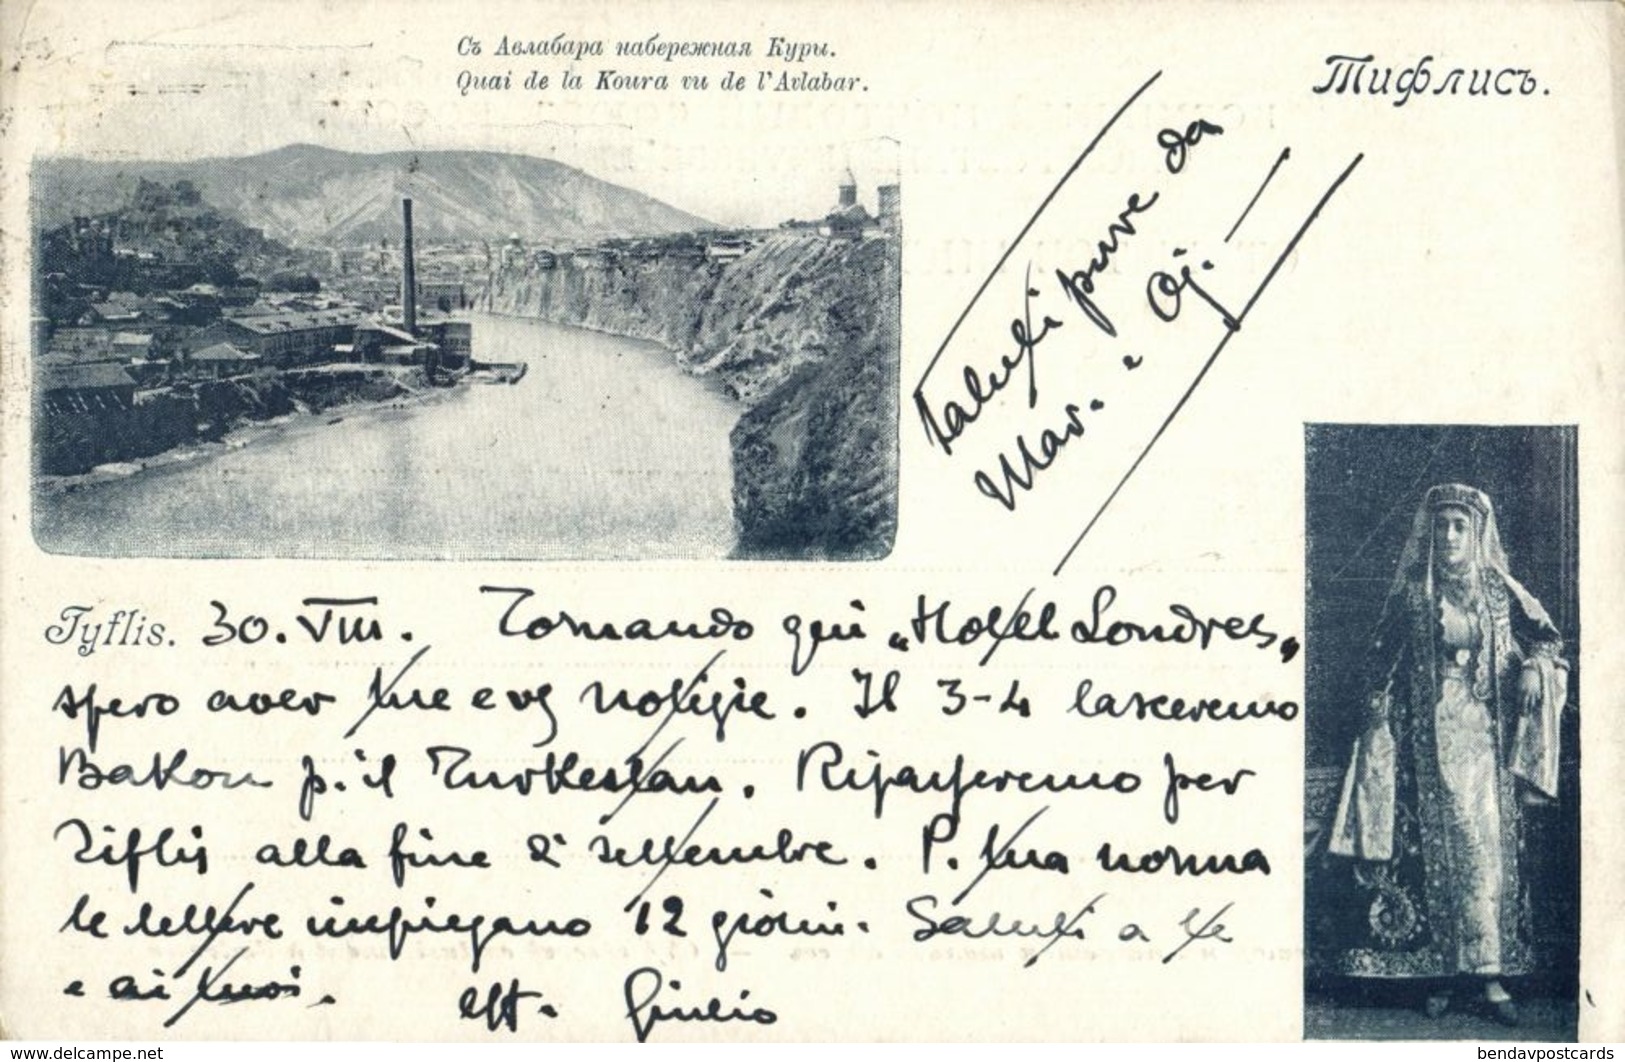 Съ Авлабара набережная Куры.
Quai de la Koura vu de l'Avlabar.
Тифлисъ.
Saluti pure da
Mar. e Oj.
Tyflis. 30. VIII. Tornando qui „Hotel Londres„
spero aver tue e vs notizie. Il 3-4 lasceremo
Bakou p. il Turkestan. Ripasseremo per
Tiflis alla fine di settembre. P. tua norma
le lettere impiegano 12 giorni. Saluti a te
e ai tuoi. aff. Giulio
www.delcampe.net
bendavpostcards